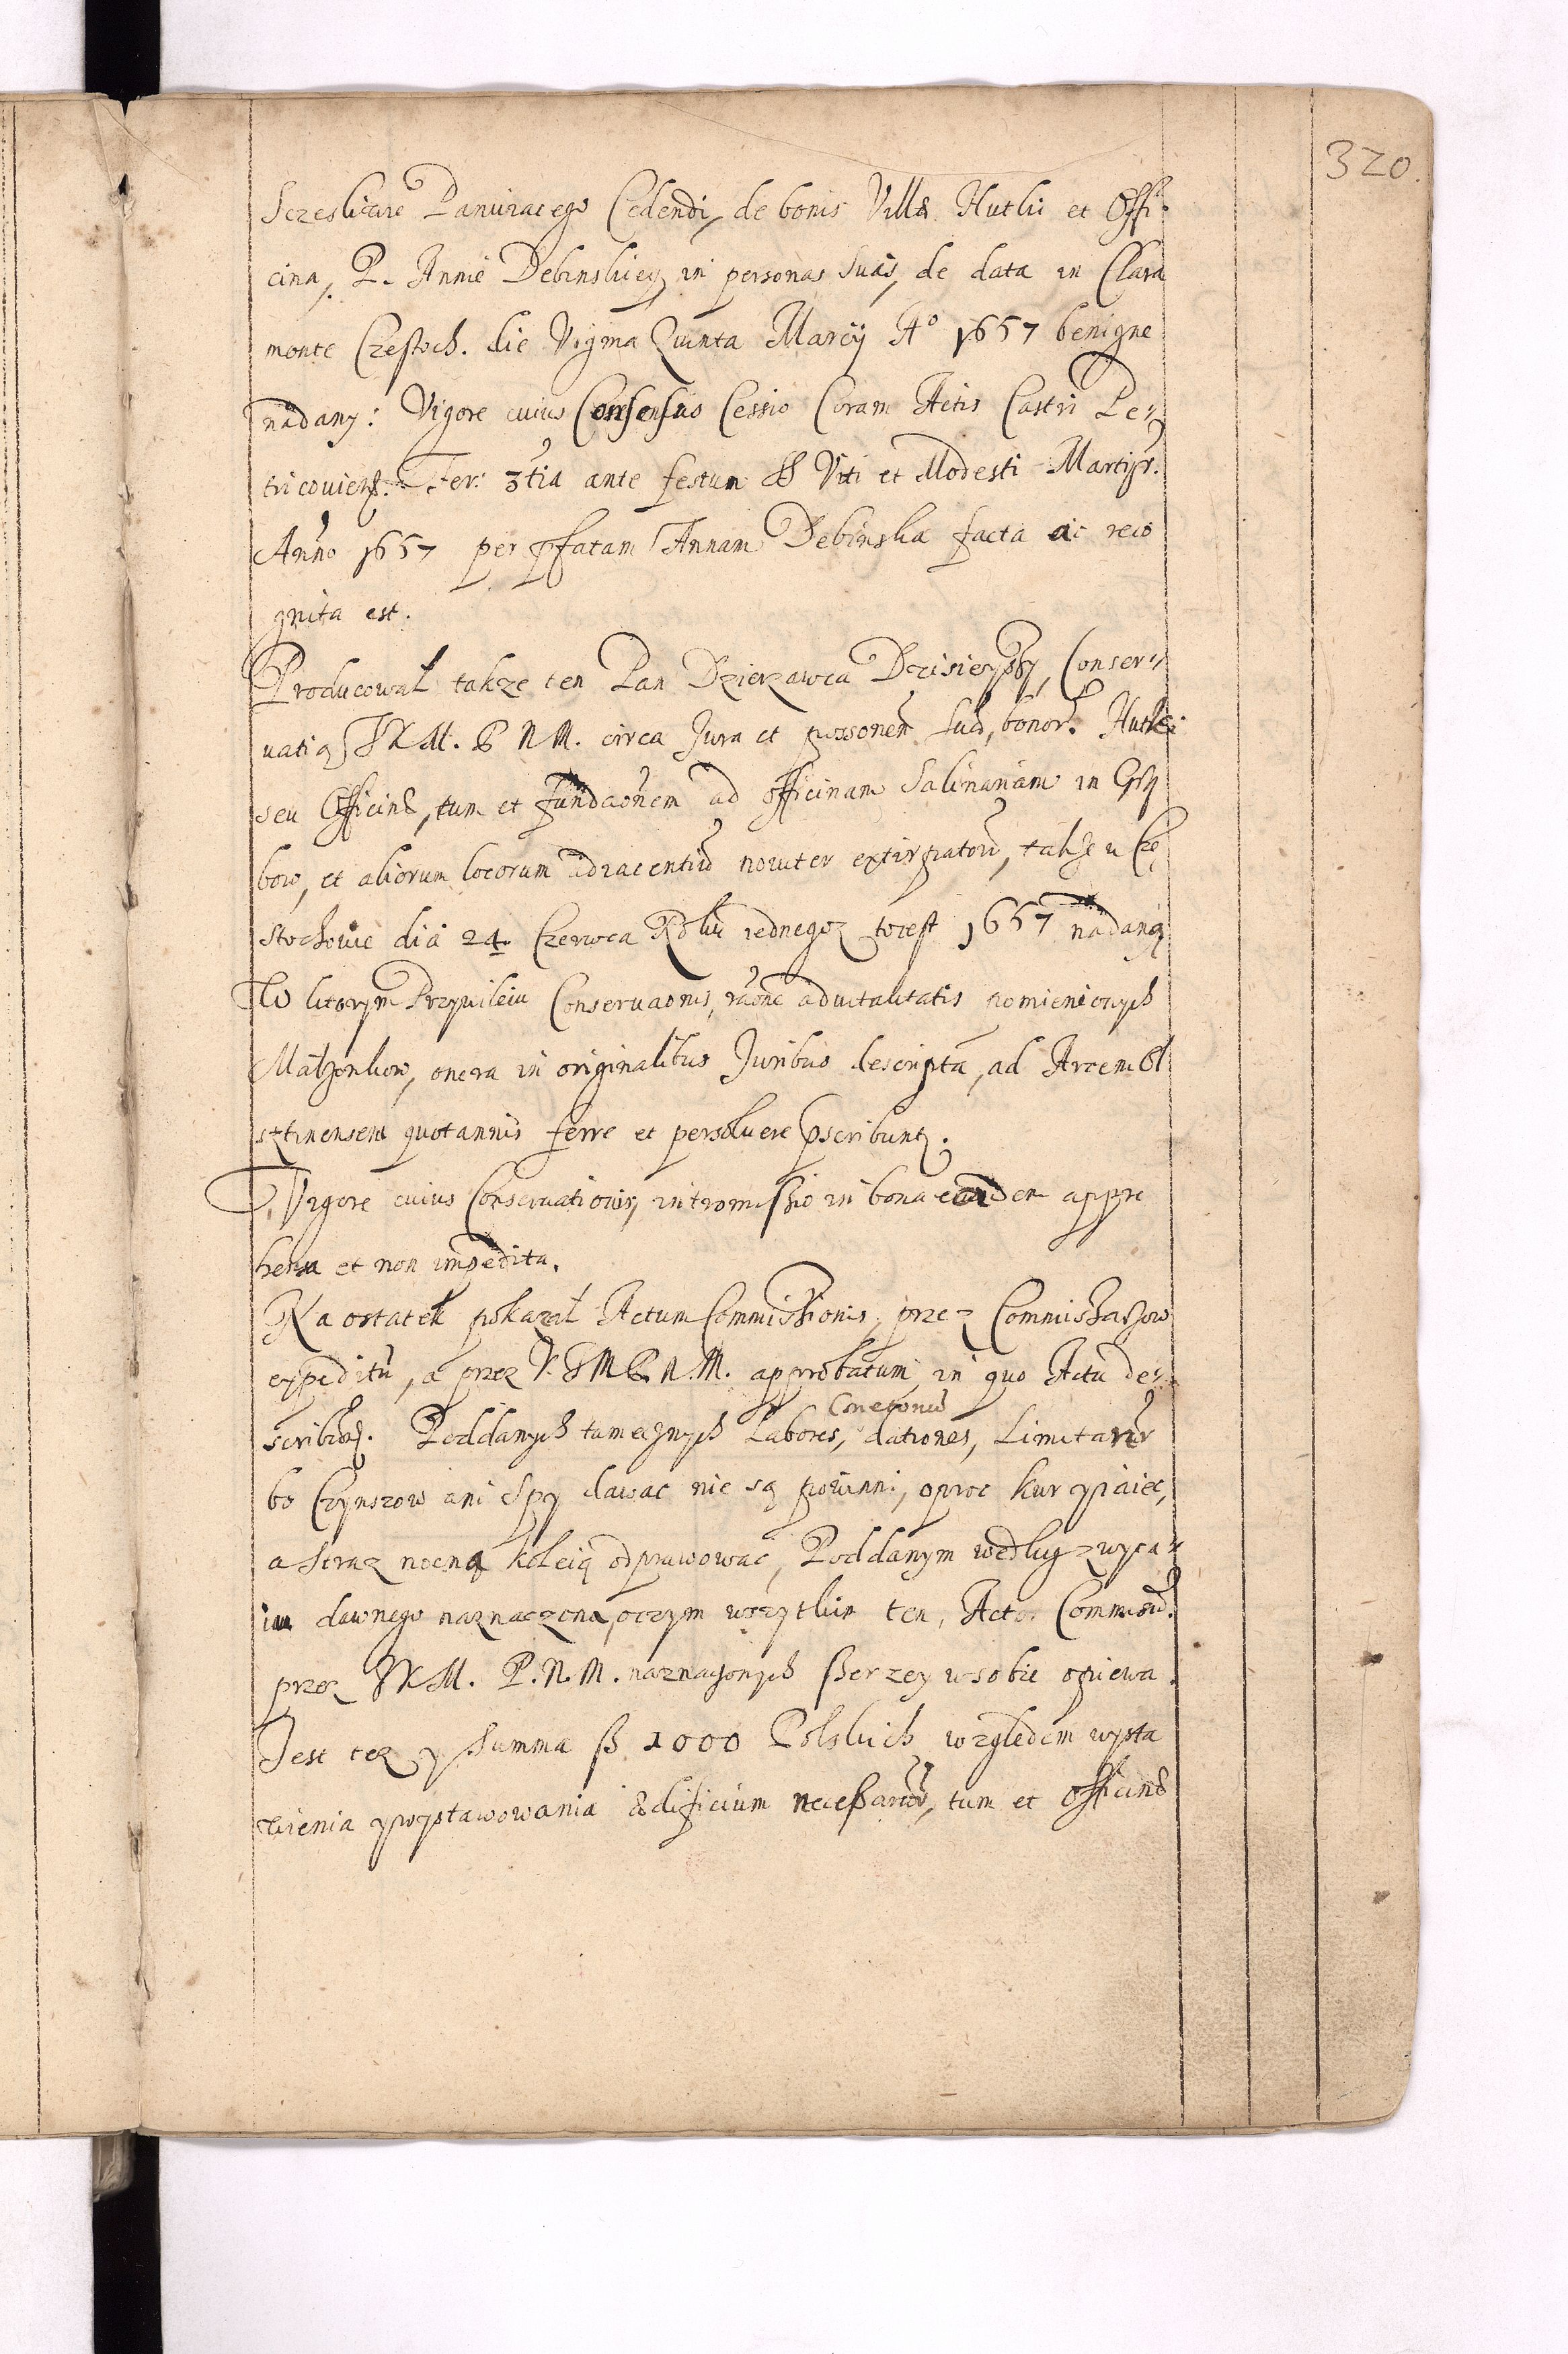 320.
Szczesliwie Panuiacego Cedendi, de bonis Villæ Hutki et Offi-
cina, P. Annie Debinskiey, in personas suas, de data in Clara
monte Częstoch. die Vigma Quinta Marcÿ A° 1657 benigne
nadany: Vigore cuius Consensus Cessio Coram Actis Castri Pe-
tricouiens. Fer: 3tia ante festum SS Viti et Modesti Martyr.
Anno 1657 per pfatam Annam Debinska facta ac reco
gnita est.
Producował takze ten Pan Dzierzawca Dzisieyszy, Conser-
uatią JKM. P N M. circa Jura et possonem suā, bonor. Hutki
seu Officinæ, tum et fundaonem ad officinam Salinariam in Grą
bow, et aliorum locorum adiacentiū nouiter extirpatorū, takze u Czę
stochowie diā 24. Czerwca Roku iednegoz toiest 1657 nadaną
W ktorym Przyuileiu Conseruaonis, raōne aduitalitatis pomienionych
Małzonkow, onera in originalibus Juribus descripta, ad Arcem Ol
sztinensem quotannis ferre et persoluere pscribunt.
Vigore cuius Conseruationis, intromissio in bona eadem appre
hensa et non impedita.
Na ostatek pokazał Actum Commissionis, przez Commissarzow
expeditū, a przez J.K M P. N. M. approbatum, in quo Actu de-
scribunt. Poddanych tamecznych Labores, dationes, Limitantur
bo Czynszow ani Spy dawac nie są powinni, oproc kur yiaiec,
a straz nocną koleią odprawowac, Poddanym według zwycza-
iu dawnego naznaczona, oczym wszytkim ten, Actus Commiss.
przez JKM. P. N. M. naznaczonych szerzey wsobie opiewa.
Jest tez y Summa ß 1000 Polskich względem wysta
wienia ywystawowania ædificium necessariorū, tum et officinæ